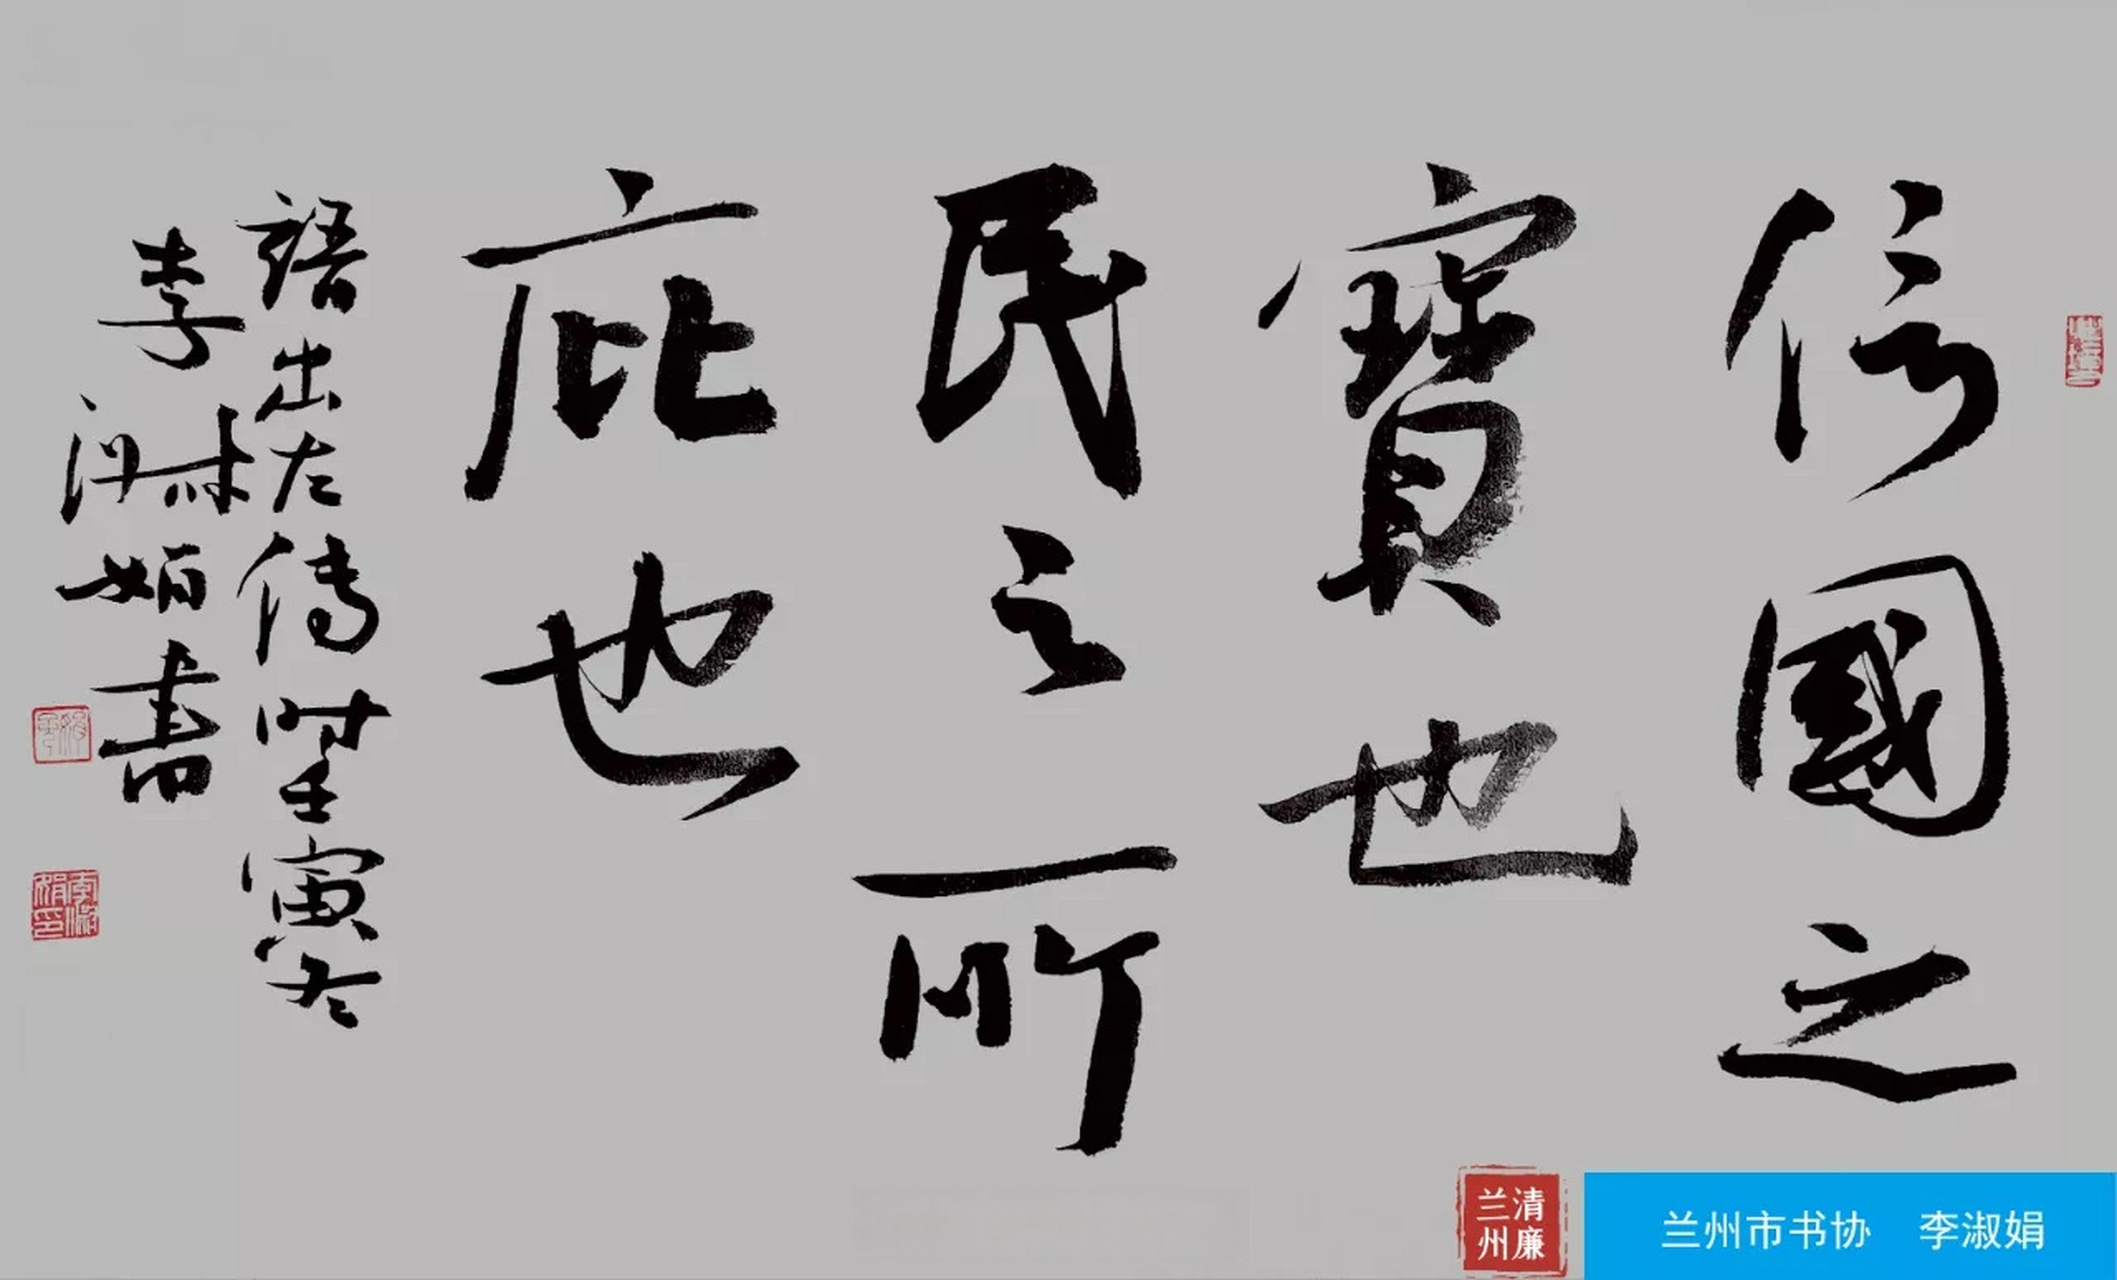 信國之
寶也
民之所
庇也
語出左傳時壬寅冬
李淑娟書
清廉
兰州
兰州市书协 李淑娟